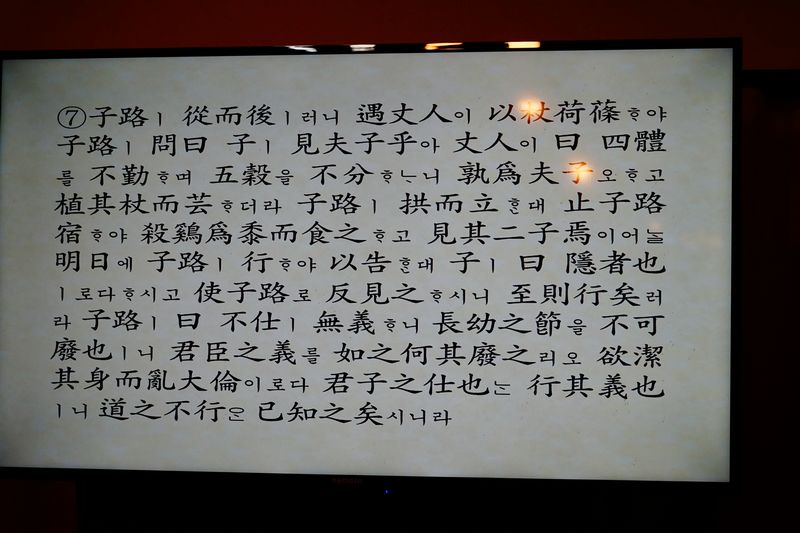 ⑦子路ㅣ 從而後ㅣ러니 遇丈人이 以杖荷蓧ᄒᆞ야
子路ㅣ 問曰 子ㅣ 見夫子乎아 丈人이 曰 四體
를 不勤ᄒᆞ며 五穀을 不分ᄒᆞᄂᆞ니 孰爲夫子오ᄒᆞ고
植其杖而芸ᄒᆞ더라 子路ㅣ 拱而立ᄒᆞᆫ대 止子路
宿ᄒᆞ야 殺鷄爲黍而食之ᄒᆞ고 見其二子焉이어ᄂᆞᆯ
明日에 子路ㅣ 行ᄒᆞ야 以告ᄒᆞᆫ대 子ㅣ 曰 隱者也
ㅣ로다ᄒᆞ시고 使子路로 反見之ᄒᆞ시니 至則行矣러
라 子路ㅣ 曰 不仕ㅣ 無義ᄒᆞ니 長幼之節을 不可
廢也ㅣ니 君臣之義를 如之何其廢之리오 欲潔
其身而亂大倫이로다 君子之仕也ᄂᆞᆫ 行其義也
ㅣ니 道之不行ᄋᆞᆫ 已知之矣시니라